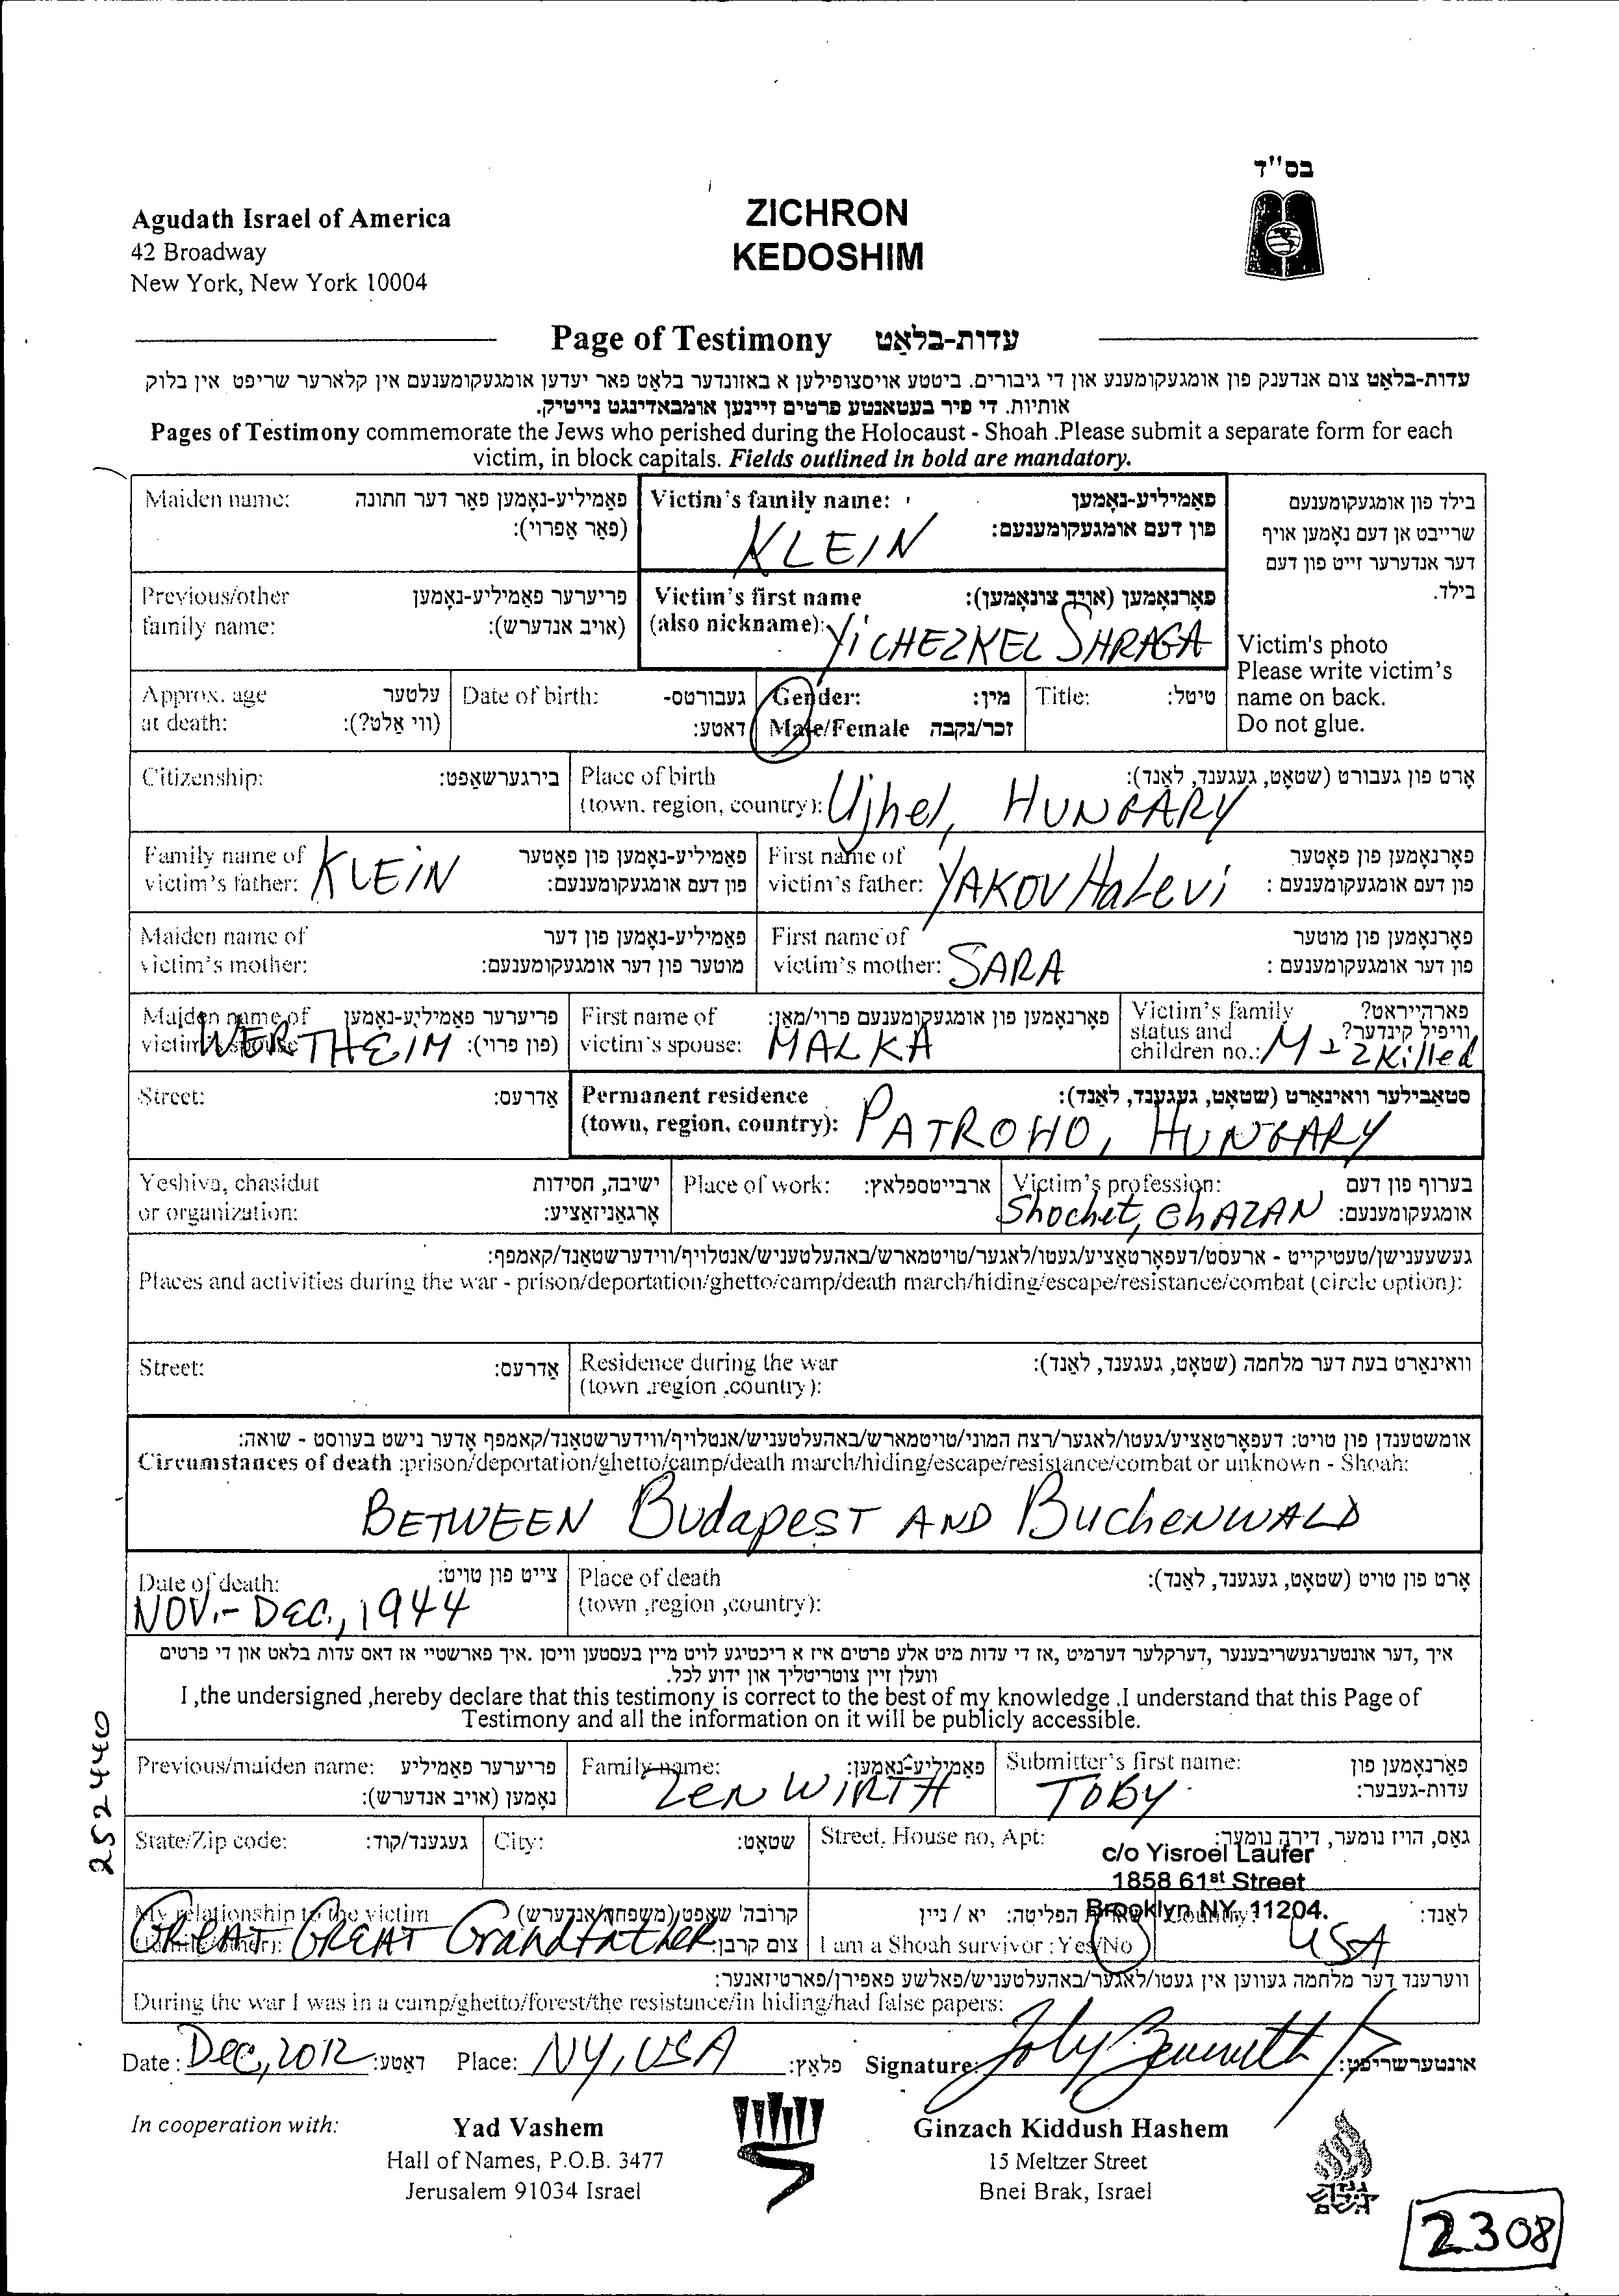 בס"ד
Agudath Israel of America
42 Broadway
New York, New York 10004
ZICHRON
KEDOSHIM
Page of Testimony עדות-בלאַט
עדות-בלאַט צום אנדענק פון אומגעקומענע און די גיבורים. ביטטע אויסצופילען א באזונדער בלאט פאר יעדען אומגעקומענעם אין קלארער שריפט אין בלוק
אותיות. די פיר בעטאנטע פרטים זיינען אומבאדינגט נייטיק.
Pages of Testimony commemorate the Jews who perished during the Holocaust - Shoah .Please submit a separate form for each
victim, in block capitals. Fields outlined in bold are mandatory.
Maiden name: פאַמיליע-נאָמען פאַר דער חתונה
(פאַר אַפרוי):
Victim's family name: פאַמיליע-נאָמען
פון דעם אומגעקומענעם:
KLEIN
בילד פון אומגעקומענעם
שרייבט אן דעם נאָמען אויף
דער אנדערער זייט פון דעם
בילד.
Victim's photo
Please write victim's
name on back.
Do not glue.
Previous/other פריערער פאַמיליע-נאָמען
family name: (אויב אנדערש):
Victim's first name פאָרנאָמען (אויך צונאָמען):
(also nickname): YiCHEZKEL SHRAGA
Approx. age עלטער
at death: (ווי אַלט?):
Date of birth: געבורטס-
דאַטע:
Gender: מין:
Male/Female זכר/נקבה
Title: טיטל:
Citizenship: בירגערשאַפט:
Place of birth אָרט פון געבורט (שטאָט, געגענד, לאַנד):
(town, region, country): Ujhel, HUNGARY
Family name of פאַמיליע-נאָמען פון פאָטער
victim's father: פון דעם אומגעקומענעם:
KLEiN
First name of פאָרנאָמען פון פאָטער
victim's father: פון דעם אומגעקומענעם :
YAKOV HaLevi
Maiden name of פאַמיליע-נאָמען פון דער
victim's mother: מוטער פון דער אומגעקומענעם:
First name of פאָרנאָמען פון מוטער
victim's mother: פון דער אומגעקומענעם :
SARA
Maiden name of פריערער פאַמיליע-נאָמען
victim's spouse (פון פרוי):
WERTHEIM
First name of פאָרנאָמען פון אומגעקומענעם פרוי/מאַן:
victim's spouse: MALKA
Victim's family פארהייראט?
status and וויפיל קינדער?
children no.: M - 2 Killed
Street: אַדרעס:
Permanent residence סטאַבילער וואוינאָרט (שטאָט, געגענד, לאַנד):
(town, region, country): PATROHO, HUNGARY
Yeshiva, chasidut ישיבה, חסידות
or organization: אָרגאַניזאַציע:
Place of work: ארבייטספלאץ:
Victim's profession: בערוף פון דעם
אומגעקומענעם:
Shochet, ChAZAN
געשעענישן/טעטיקייט - ארעסט/דעפּאָרטאַציע/געטו/לאגער/טויטמארש/באהעלטעניש/אנטלויף/ווידערשטאַנד/קאמפף:
Places and activities during the war - prison/deportation/ghetto/camp/death march/hiding/escape/resistance/combat (circle option):
Street: אַדרעס:
Residence during the war וואוינאָרט בעת דער מלחמה (שטאָט, געגענד, לאַנד):
(town .region .country):
אומשטענדן פון טויט: דעפּאָרטאַציע/געטו/לאגער/רצח המוני/טויטמארש/באהעלטעניש/אנטלויף/ווידערשטאַנד/קאמפף אָדער נישט בעוווסט - שואה:
Circumstances of death :prison/deportation/ghetto/camp/death march/hiding/escape/resistance/combat or unknown - Shoah:
BETWEEN BudapEST AND BuchENWALD
Date of death: צייט פון טויט:
NOV.- DEC., 1944
Place of death אָרט פון טויט (שטאָט, געגענד, לאַנד):
(town ,region ,country):
איך ,דער אונטערגעשריבענער ,דערקלער דערמיט ,אז די עדות מיט אלע פרטים איז א ריכטיגע לויט מיין בעסטען וויסן .איך פארשטיי אז דאס עדות בלאט און די פרטים
וועלן זיין צוטריטליך און ידוע לכל.
I ,the undersigned ,hereby declare that this testimony is correct to the best of my knowledge .I understand that this Page of
Testimony and all the information on it will be publicly accessible.
252440
Previous/maiden name: פריערער פאַמיליע
נאָמען (אויב אנדערש):
Family name: פאַמיליע-נאָמען:
ZENWiRTH
Submitter's first name: פאָרנאָמען פון
עדות-געבער:
TOBY
State/Zip code: געגענד/קוד:
City: שטאָט:
Street, House no, Apt: גאַס, הויז נומער, דירה נומער:
c/o Yisroel Laufer
1858 61st Street
Brooklyn NY. 11204.
My relationship to the victim קרובה' שאַפט (משפחה/אנדערש)
צום קרבן:
GREAT GREAT Grandfather
הפליטה: יא / ניין
I am a Shoah survivor : Yes/No
לאַנד:
USA
ווערענד דער מלחמה געווען אין געטו/לאגער/באהעלטעניש/פאלשע פאפירן/פארטיזאנער:
During the war I was in a camp/ghetto/forest/the resistance/in hiding/had false papers:
Date : Dec, 2012 דאטע: Place: NY, USA פּלאַץ: Signature: אונטערשריפט:
In cooperation with:
Yad Vashem
Hall of Names, P.O.B. 3477
Jerusalem 91034 Israel
Ginzach Kiddush Hashem
15 Meltzer Street
Bnei Brak, Israel
2308